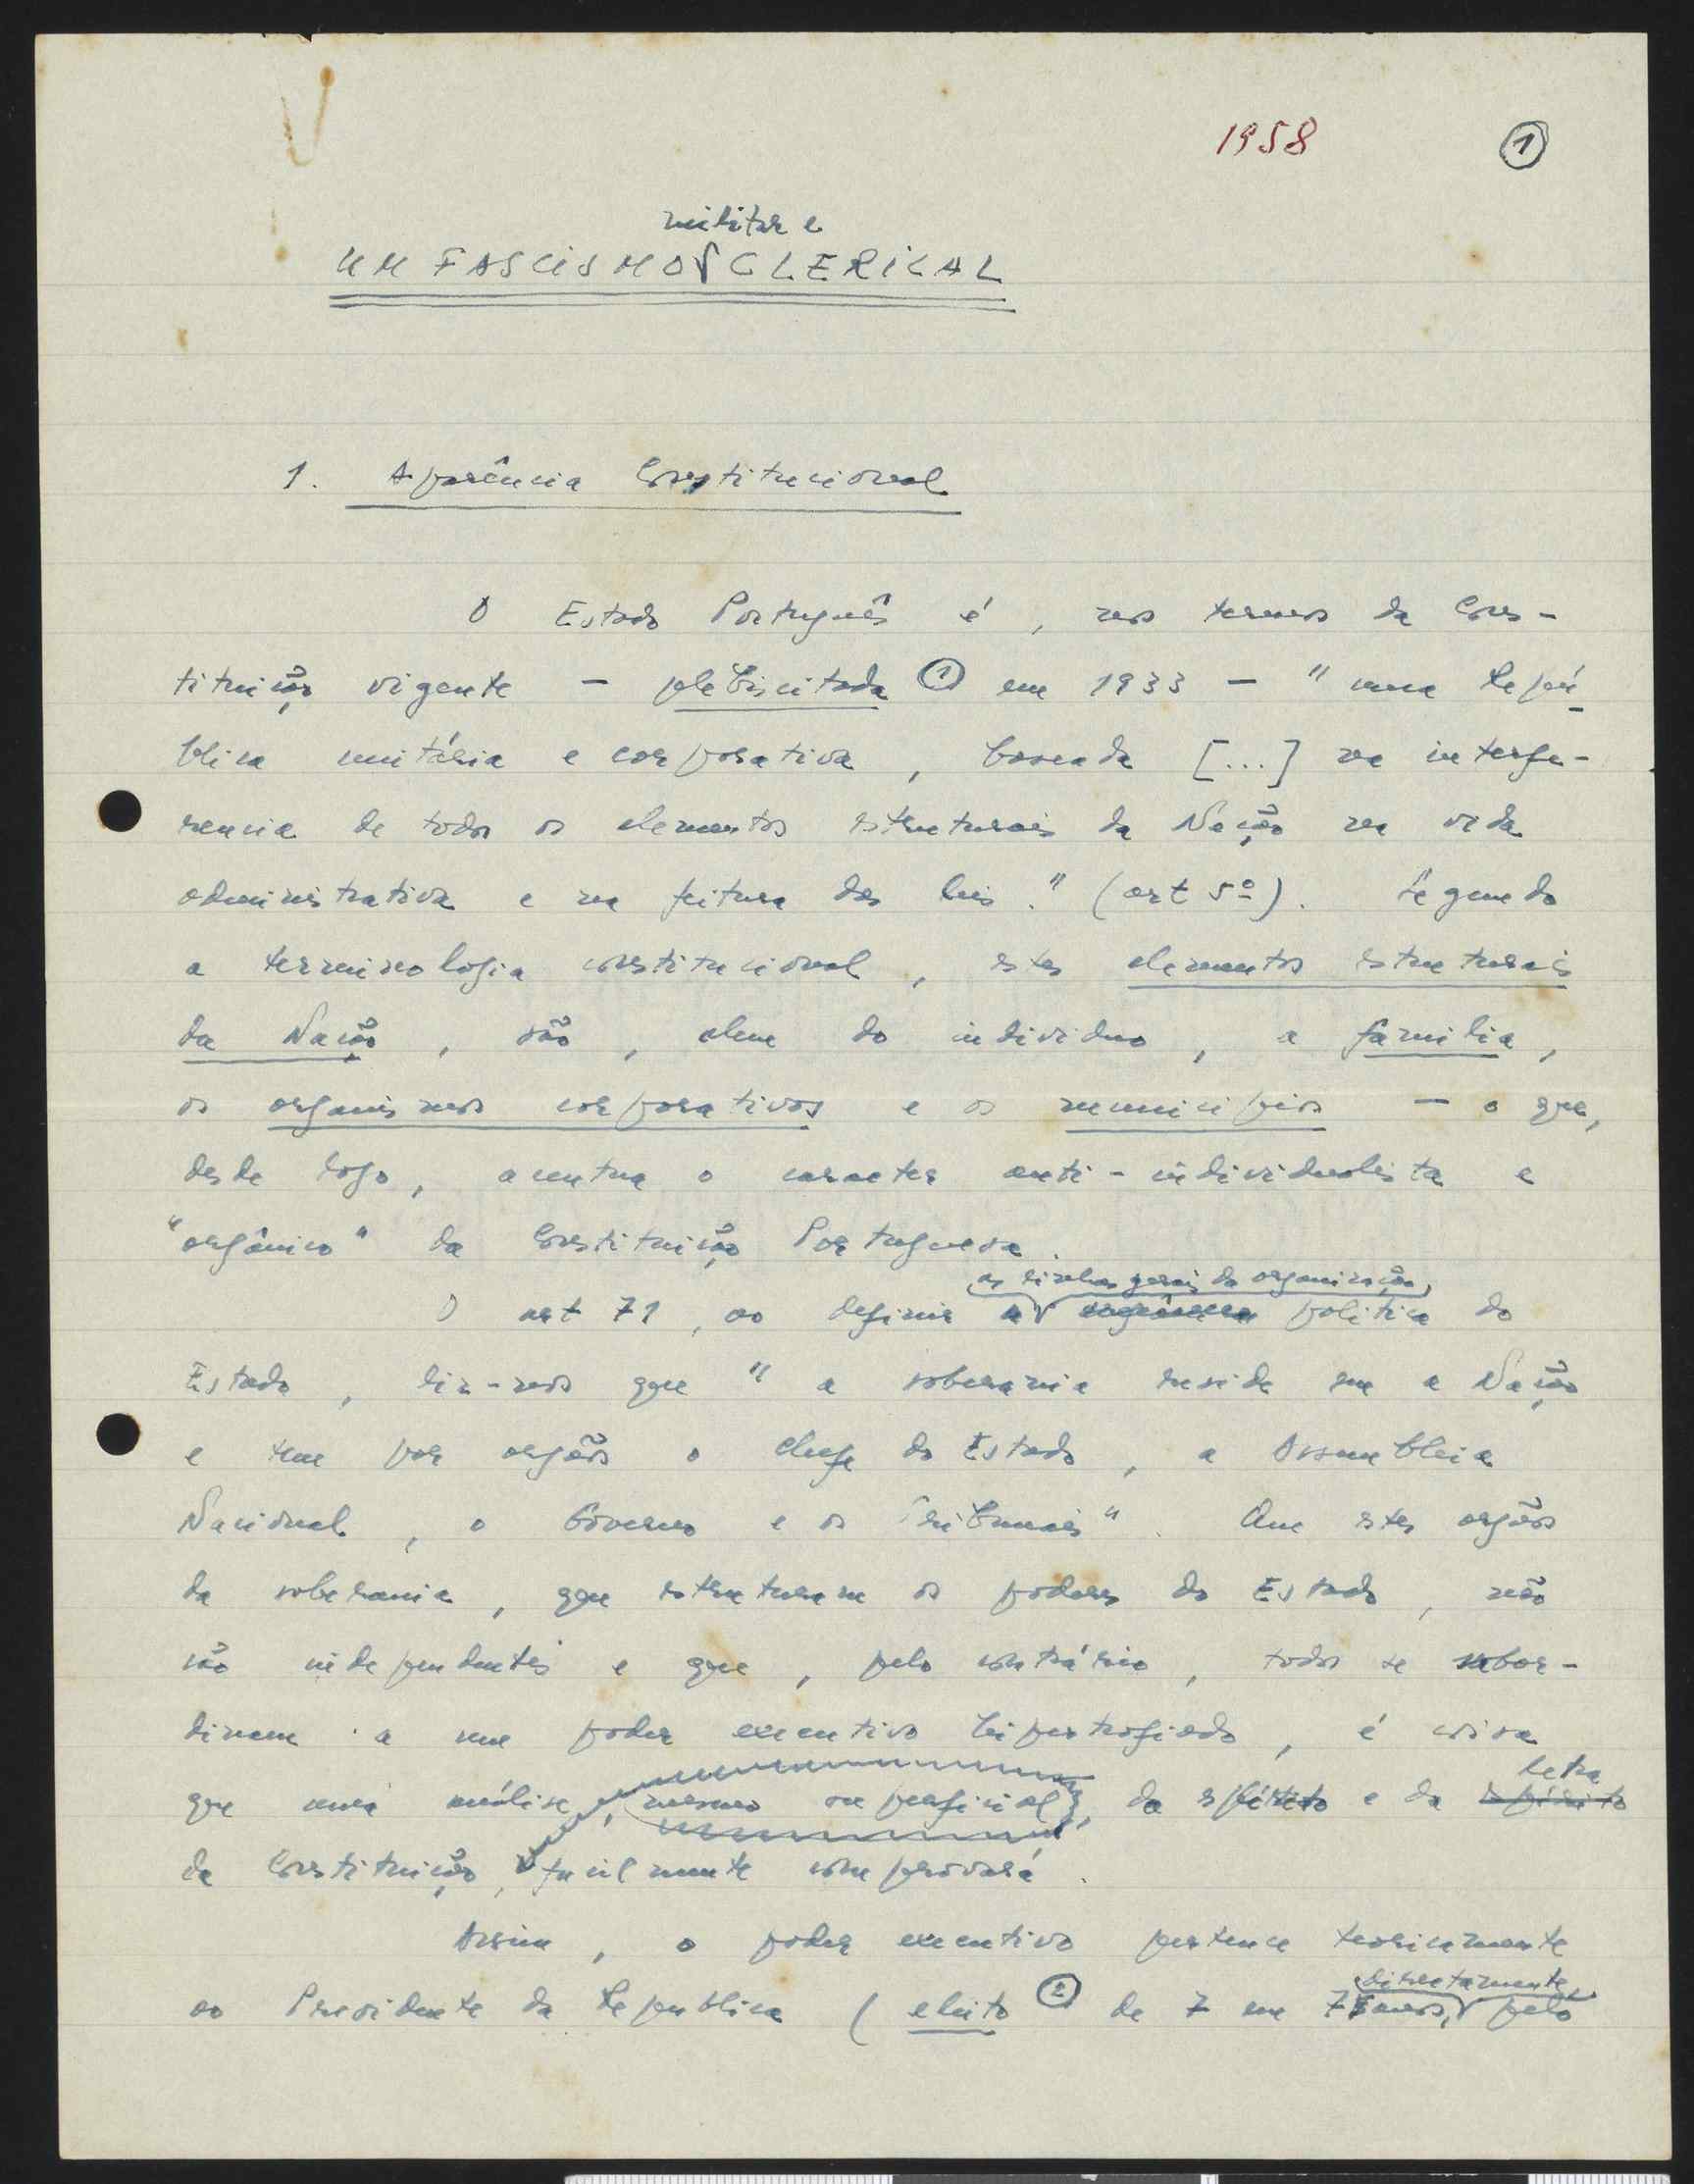 1958 1
militar e
UM FASCISMO CLERICAL
1. Aparência Constitucional
O Estado Português é, nos termos da Cons-
tituição vigente - plebiscitada 1 em 1933 - " uma Repú-
blica unitária e corporativa, baseada [...] na interfe-
rencia de todos os elementos estruturais da Nação na vida
administrativa e na feitura das leis." (art 5º). Segundo
a terminologia constitucional, estes elementos estruturais
da Nação, são, alem do individuo, a familia,
os organismos corporativos e os municipios - o que,
desde logo, acentua o caracter anti-individualista e
"orgânico" da Constituição Portuguesa.
as linhas gerais da organização
O art 71, ao definir a politica do
Estado, diz-nos que " a soberania reside em a Nação
e tem por orgãos o chefe do Estado, a Assembleia
Nacional, o Governo e os Tribunais". Que estes orgãos
da soberania, que estruturam os poderes do Estado, não
são independentes e que, pelo contrário, todos se subor-
dinam a um poder executivo hipertrofiado, é coisa
letra
que uma análise, mesmo superficial, do espírito e da espírito
da Constituição, facilmente comprovará.
Assim, o poder executivo pertence teoricamente
directamente
ao Presidente da Republica (eleito 2 de 7 em 7 anos, pelo